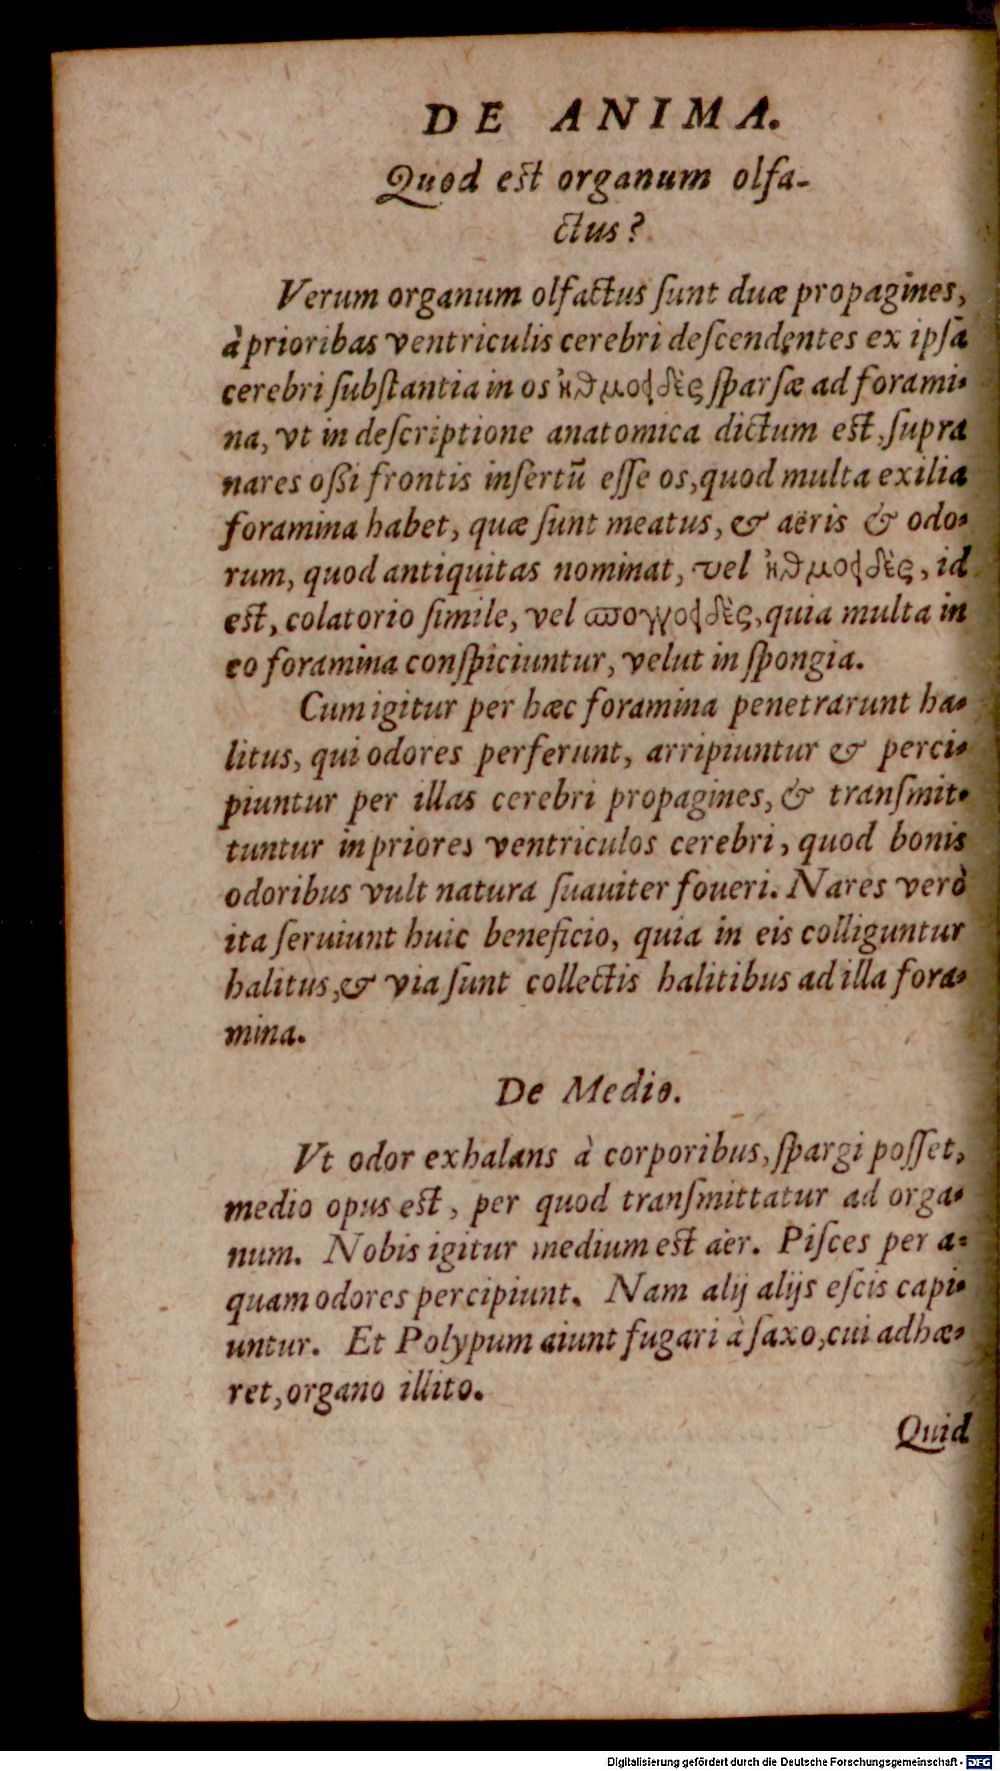 DE ANIMA.
Quod est organum olfa-
ctus?
Verum organum olfactus ſunt duæ propagines,
à prioribas ventriculis cerebri deſcendentes ex ipſa
cerebri ſubſtantia in os ἠθμοειδὲς ſparſæ ad forami-
na, vt in deſcriptione anatomica dictum est, ſupra
nares oſſi frontis inſertū eſſe os, quod multa exilia
foramina habet, quæ ſunt meatus, & aëris & odo-
rum, quod antiquitas nominat, vel ἠθμοειδὲς, id
est, colatorio ſimile, vel σπογγοειδὲς, quia multa in
eo foramina conſpiciuntur, velut in ſpongia.
Cum igitur per hæc foramina penetrarunt ha-
litus, qui odores perferunt, arripiuntur & perci-
piuntur per illas cerebri propagines, & tranſmit-
tuntur in priores ventriculos cerebri, quod bonis
odoribus vult natura ſuauiter foueri. Nares verò
ita ſeruiunt huic beneficio, quia in eis colliguntur
halitus, & via ſunt collectis halitibus ad illa fora-
mina.
De Medio.
Vt odor exhalans à corporibus, ſpargi poſſet,
medio opus est, per quod tranſmittatur ad orga-
num. Nobis igitur medium est aër. Piſces per a-
quam odores percipiunt. Nam alij alijs eſcis capi-
untur. Et Polypum aiunt fugari à ſaxo, cui adhæ-
ret, organo illito.
Quid
Digitalisierung gefördert durch die Deutsche Forschungsgemeinschaft - DFG